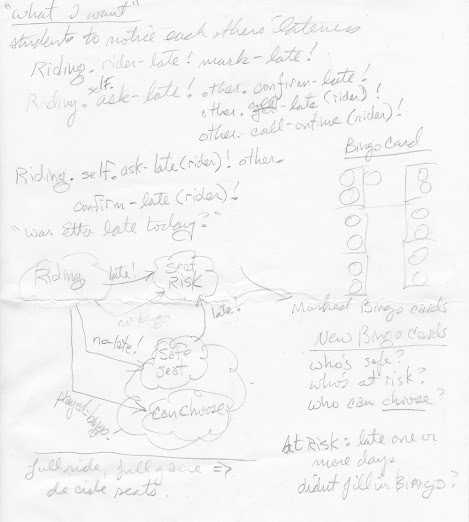 "What I want"
students to notice each others' lateness
Riding. rider-late! mark-late!
self.
Riding. ask-late! other. confirm-late!
other. call-late (rider)!
other. call-ontime (rider)!
Bingo Card
Riding. self. ask-late (rider)! other.
confirm-late (rider)!
"was Etta late today?"
Riding
late!
Seat
Risk
no bingo
late!
no-late!
Safe
seat
Can Choose
Played-bingo
Marked Bingo cards
New Bingo Cards
who's safe?
who's at risk?
who can choose?
At Risk: late one or
more days
didn't fill in Bingo?
full ride, full game =>
decide seats.